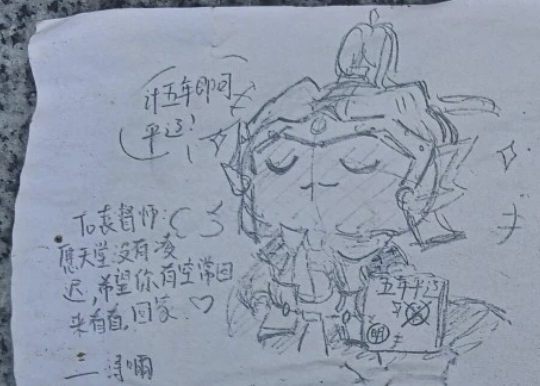 计五年即可
平辽!
To袁督师:
愿天堂没有凌
迟,希望你有空常回
来看看,回家♡
五年平辽
明